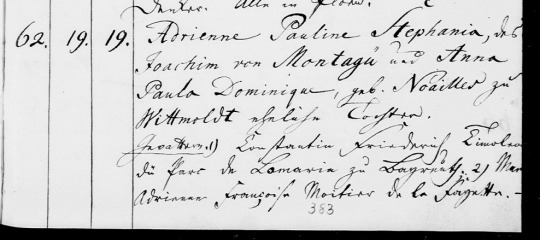 Deuter. Alle in Ploen.
62. 19. 19. Adrienne Pauline Stephania, des
Joachim von Montagü und Anna
Paula Dominique, geb. Noailles zu
Wittmoldt eheliche Tochter.
Gevattern. 1) Constantin Friederich Timoleon
dü Parc de Lomaria zu Bagreuth. 2) Mar
Adrienne Françoise Motier de la Fayette. –
383